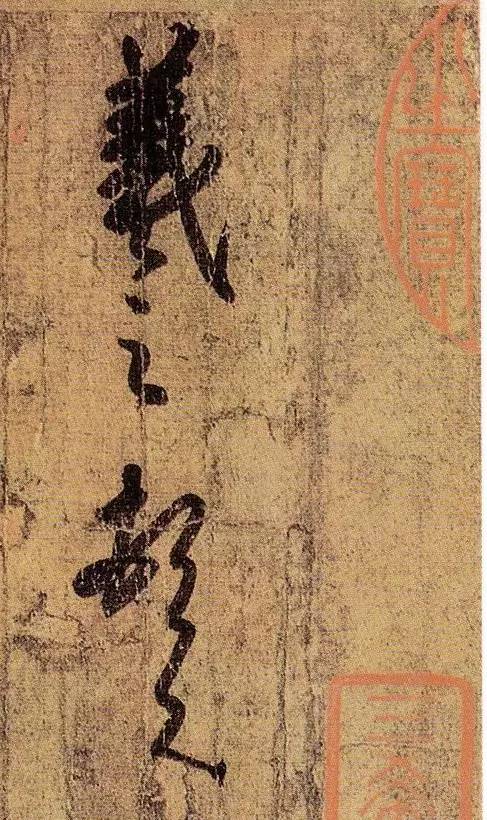 羲之頓首